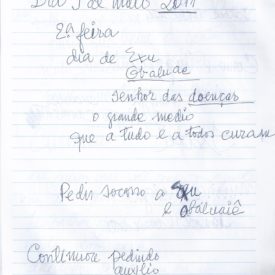 Dia 9 de maio 2011
2ª feira
dia de Exu
Obaluae
Senhor das doenças
o grande medio
que a tudo e a todos curam
Pedir socorro a Exu
e Obaluaiê
Continuar pedindo
auxilio